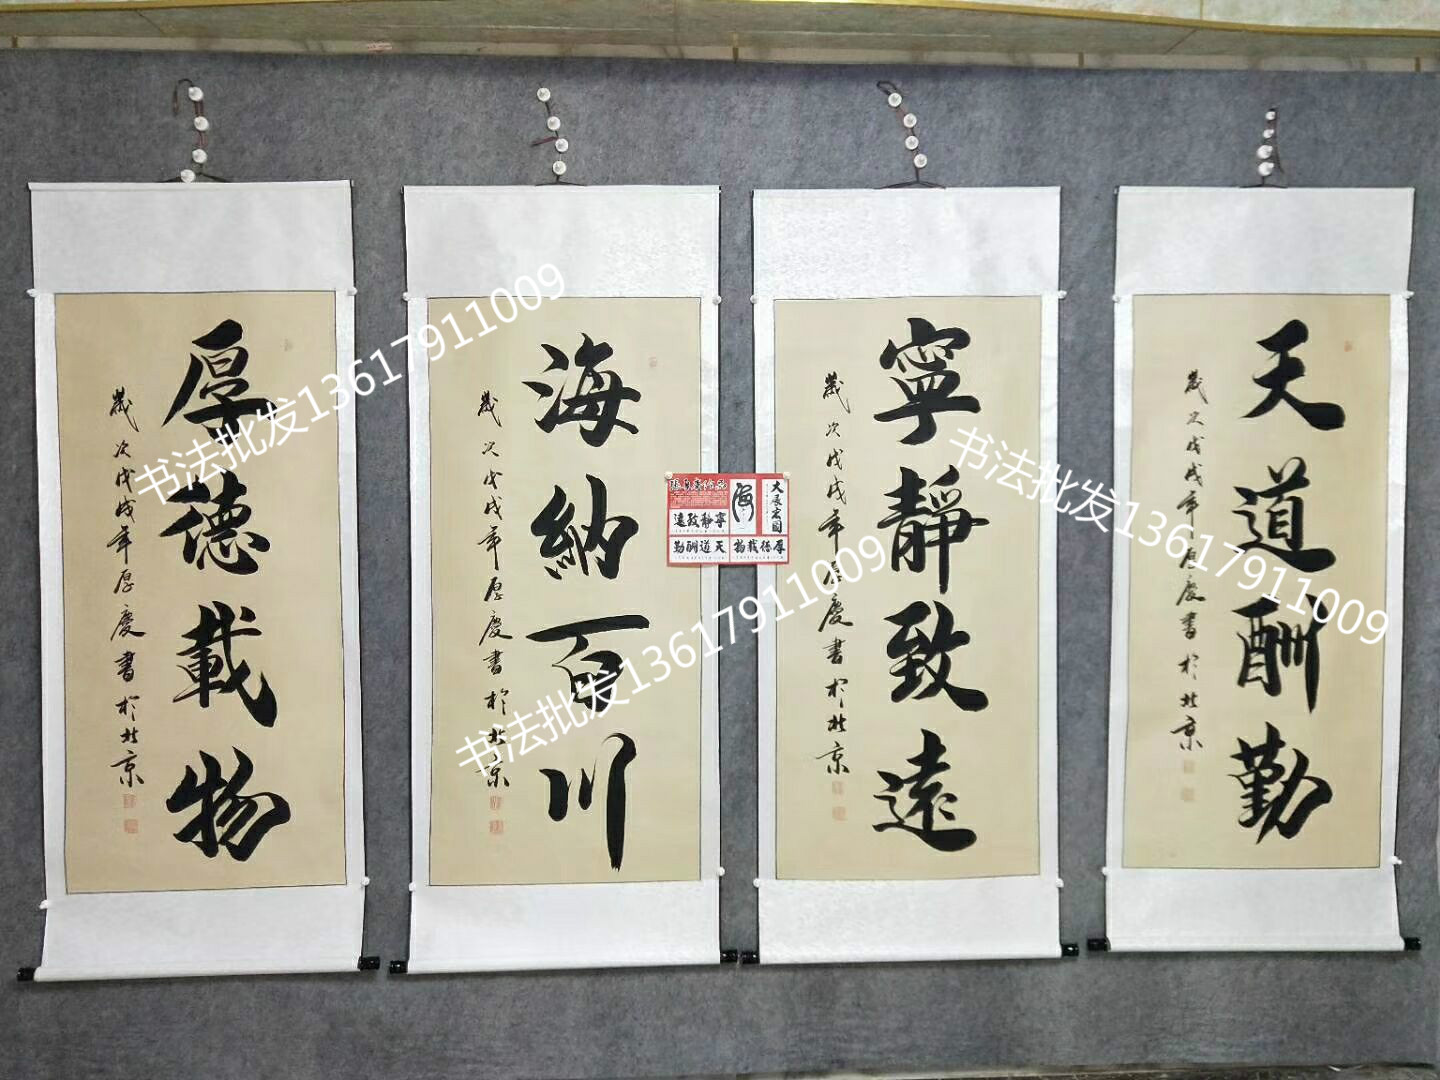 厚德載物
歲次戊戌年厚慶書於北京
海納百川
歲次戊戌年厚慶書於北京
寧靜致遠
歲次戊戌年厚慶書於北京
天道酬勤
歲次戊戌年厚慶書於北京
大展宏圖
海
寧靜致遠
天道酬勤
厚德載物
书法批发13617911009
书法批发13617911009
书法批发13617911009